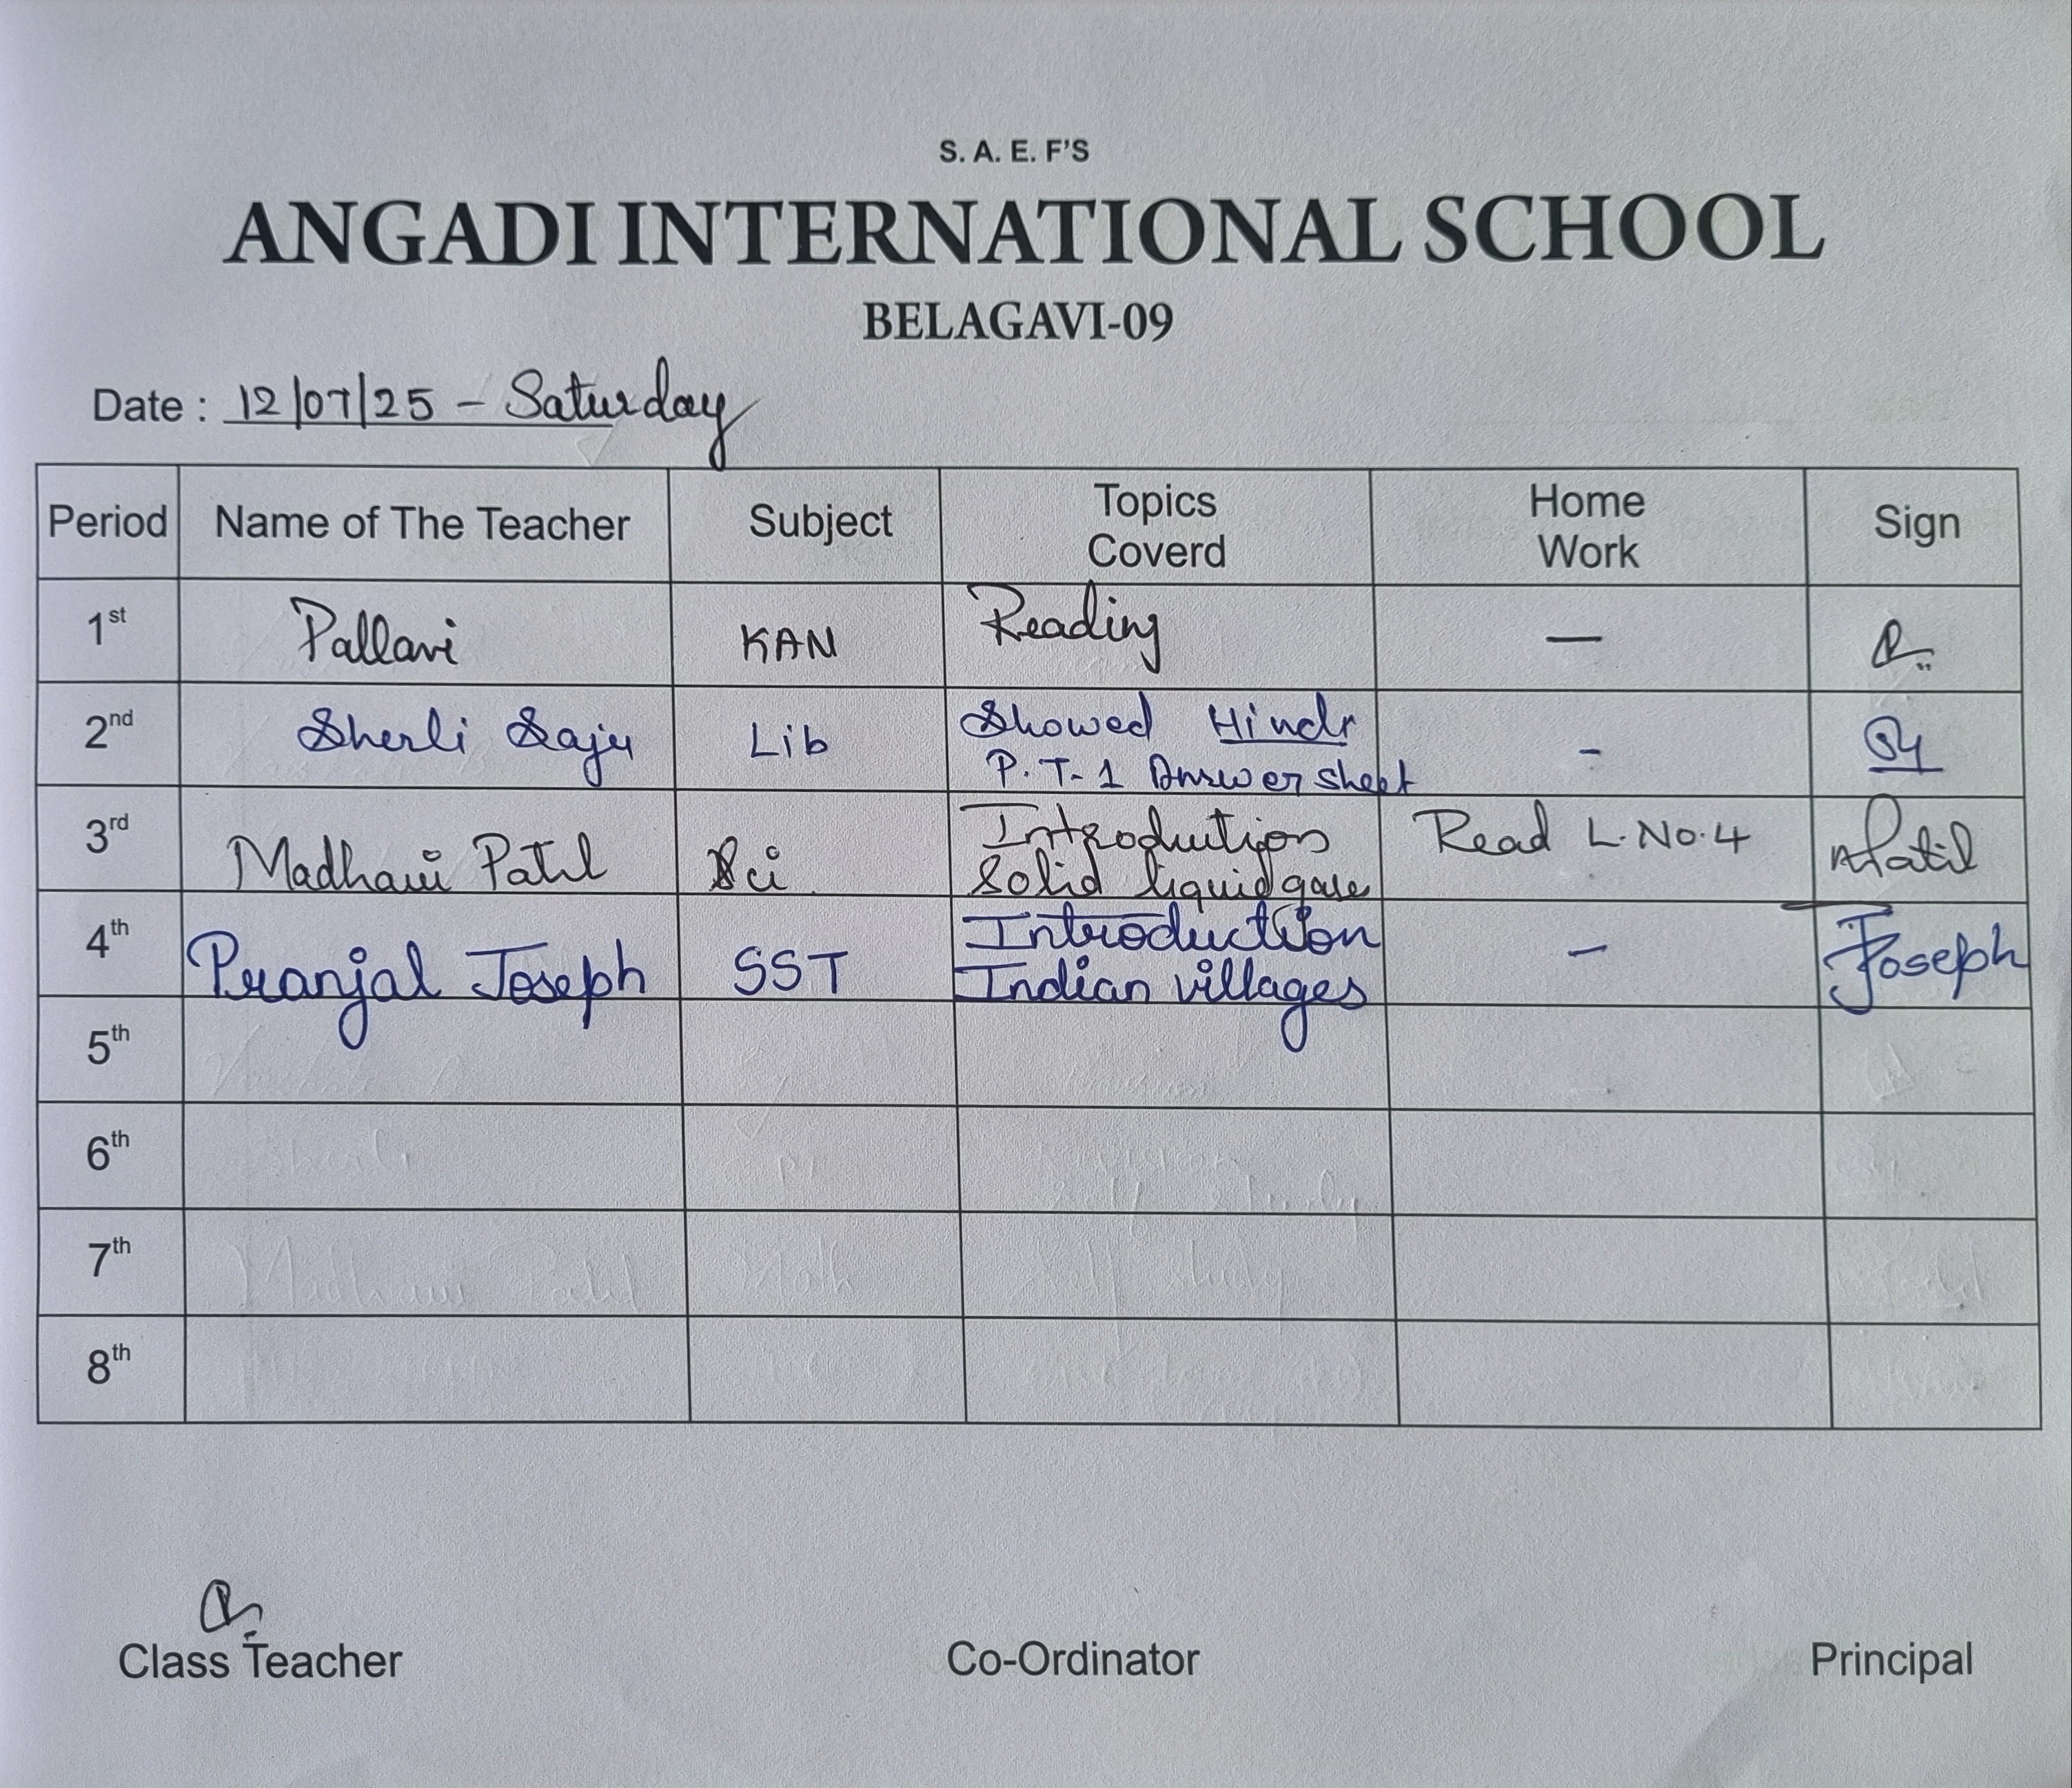 S. A. E. F'S
ANGADI INTERNATIONAL SCHOOL
BELAGAVI-09
Date : 12/07/25 - Saturday
Period Name of The Teacher Subject Topics Coverd Home Work Sign
1st Pallavi KAN Reading —
2nd Sherli Saju Lib Showed Hindi P.T-1 Answer sheet -
3rd Madhavi Patil Sci Introduction Solid liquid gase Read L.No.4 Patil
4th Pranjal Joseph SST Introduction Indian villages - Joseph
5th
6th
7th
8th
Class Teacher Co-Ordinator Principal